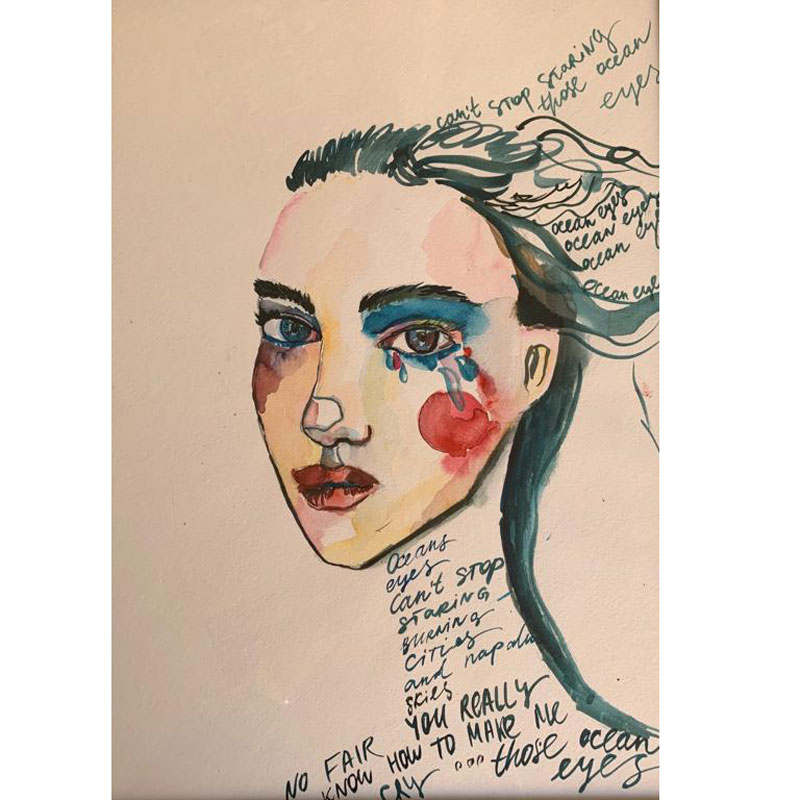 can't STOP STARING
those ocean
eyes
ocean eyes
ocean eyes
ocean eye
ocean eye
Oceans
eyes
can't STOP
STARING
BURNING
CITIES
and napalm
skies
NO FAIR YOU REALLY
KNOW HOW TO MAKE ME
CRY ... those ocean
eyes